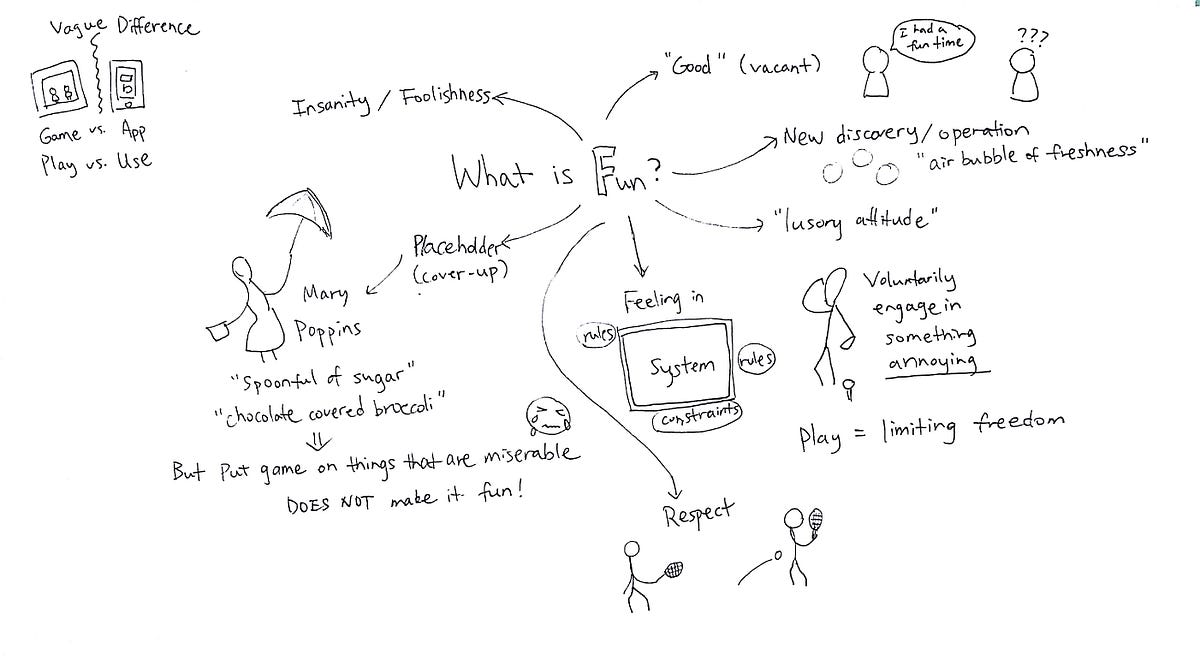 Vague Difference
Game vs. App
Play vs. Use
What is Fun?
Insanity / Foolishness
"Good" (vacant)
I had a
fun time
???
New discovery / operation
"air bubble of freshness"
"lusory attitude"
Voluntarily
engage in
something
annoying
Play = limiting freedom
Feeling in
rules
System
rules
constraints
Respect
Placeholder
(cover-up)
Mary
Poppins
"Spoonful of sugar"
"chocolate covered broccoli"
But Put game on things that are miserable
DOES NOT make it fun!